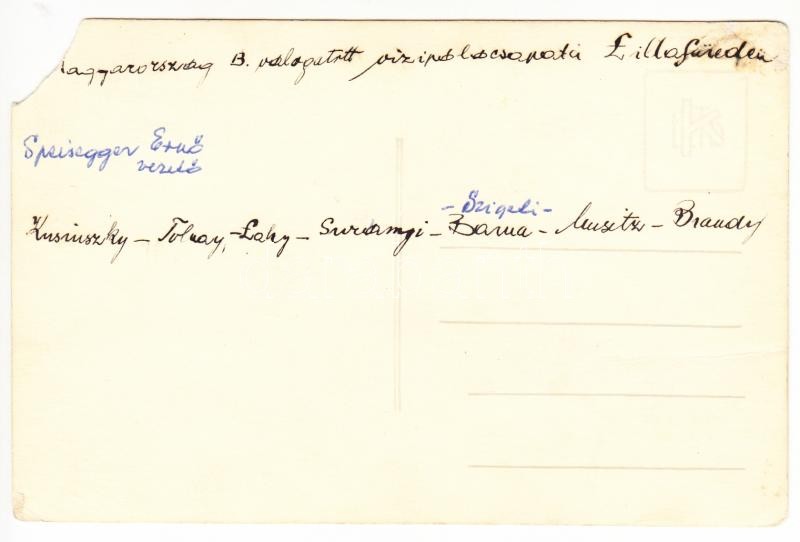 Magyarország B. válogatott vizipólócsapata Lillafüreden
Speisegger Ernő
vezető
- Szigeti -
Kusinszky - Tolnay, - Laky - Surányi - Barna - Musitz - Brandy